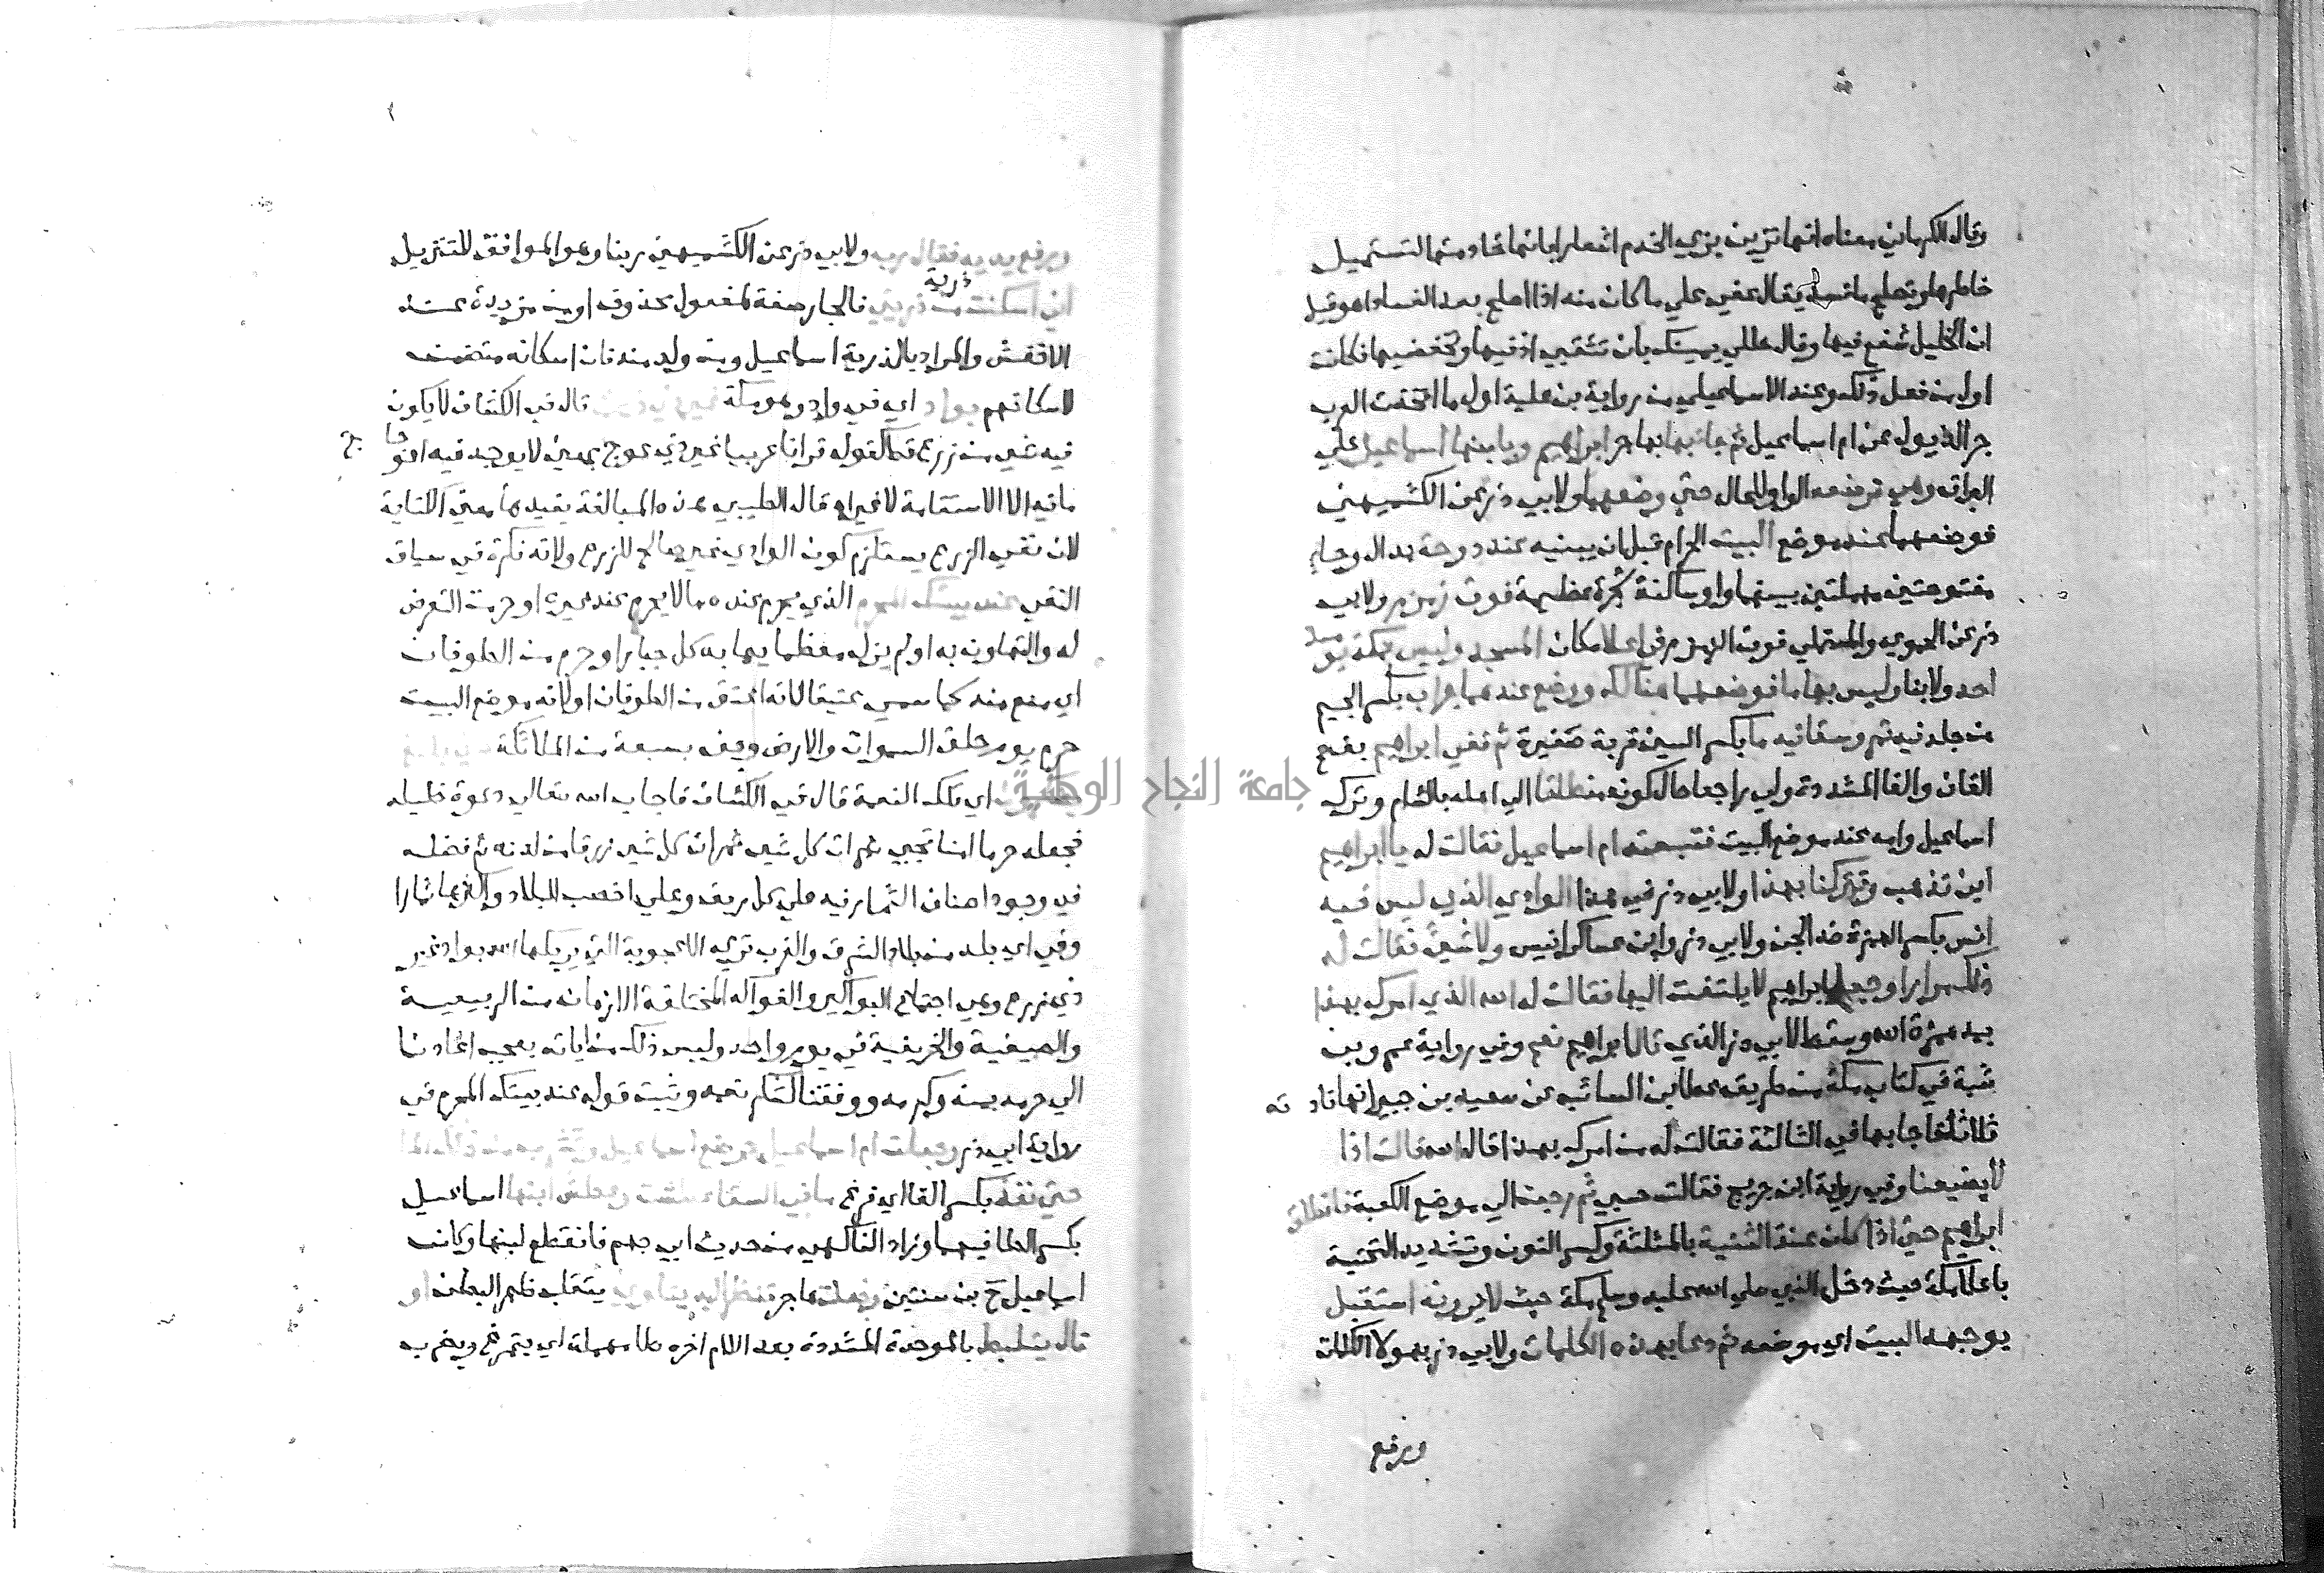 وقال الكرماني معناه انها تزينت بزي الخدم اشعارا بانها خادمتها لتستميل
خاطرها وتصلح ما فسد يقال عفي علي ما كان منه اذا اصلح بعد الفساد وقيل
ان الخليل شفع فيها وقال حللي يمينك بان تثقبي اذنيها وتخفضيها فكانت
اول من فعل ذلك وعند الاسماعيلي من رواية بن علية اول ما اتخذت العرب
جر الذيول عن ام اسماعيل ثم جا بها بهاجر ابراهيم وبابنها اسماعيل علي
البراق وهي ترضعه الواو للحال حتي وضعهما ولابي ذر عن الكشميهني
فوضعهما عند موضع البيت الحرام قبل ان يبنيه عند دوحة بدال وحا
مفتوحتين مهملتين بينهما واو ساكنة شجرة عظيمة فوق زمزم ولابي
ذر عن الحموي والمستملي فوق الزمزم في اعلا مكان المسجد وليس بمكة يوميذ
احد ولا بنا وليس بها ما فوضعهما هنالك ووضع عندهما جرابا بكسر الجيم
من جلد فيه تمر وسقا فيه ما بكسر السين قربة صغيرة ثم قفي ابراهيم بفتح
القاف والفا المشددة ولي راجعا حال كونه منطلقا الي اهله بالشام وترك
اسماعيل وامه عند موضع البيت فتبعته ام اسماعيل فقالت له يا ابراهيم
اين تذهب وتتركنا بهذا ولابي ذر في هذا الوادي الذي ليس فيه
انس بكسر الهمزة ضد الجن ولابي ذر وابن عساكر انيس ولا شيء فقالت له
ذلك مرارا وجعل ابراهيم لا يلتفت اليها فقالت له الله الذي امرك بهذا
بمد همزة الله وسقط لابي ذر الذي قال ابراهيم نعم وفي رواية عمر وبن
شبة في كتاب مكة من طريق عطا بن السائب عن سعيد بن جبير انها نادته
ثلاثا فاجابها في الثالثة فقالت له من امرك بهذا قال الله قالت اذا
لا يضيعنا وفي رواية ابن جريج فقالت حسبي ثم رجعت الي موضع الكعبة فانطلق
ابراهيم حتي اذا كان عند الثنية بالمثلثة وكسر النون وتشديد التحتية
باعلا مكة حيث دخل النبي صلي الله عليه وسلم مكة حيث لا يرونه استقبل
بوجهه البيت اي موضعه ثم دعا بهذه الكلمات ولابي ذر بهولا الكلمات
ورفع
ورفع يديه فقال رب ولابي ذر عن الكشميهني ربنا وهو الموافق للتنزيل
ذرية
اني اسكنت من ذريتي فالجار صفة لمفعول محذوف او من مزيدة عند
الاخفش والمراد بالذرية اسماعيل ومن ولد منه فان اسكانه متضمن
لاسكانهم بواد اي في واد وهو مكة غير ذي زرع قال في الكشاف لا يكون
فيه شي من زرع قط كقوله قرانا عربيا غير ذي عوج بمعني لا يوجد فيه اعوجاج
ما فيه الا الاستقامة لا غير وقال الطيبي هذه المبالغة يفيدها معني الكناية
لان نفي الزرع يستلزم كون الوادي غير صالح للزرع ولانه نكرة في سياق
النفي عند بيتك المحرم الذي يحرم عنده ما لا يحرم عند غيره او حرمت التعرض
له والتهاون به او لم يزل معظما يهابه كل جبار او حرم من الطوفان
اي منع منه كما سمي عتيقا لانه اعتق من الطوفان او لانه موضع البيت
حرم يوم خلق السموات والارض وحف بسبعة من الملائكة حتي بلغ
يشكرون اي تلك النعمة قال في الكشاف فاجاب الله تعالي دعوة خليله
فجعله حرما امنا تجبي ثمرات كل شي ثمرات كل شي رزقا من لدنه ثم فضله
في وجود اصناف الثمار فيه علي كل ريف وعلي اخصب البلاد واكثرها ثمارا
وفي اي بلد من بلاد الشرق والغرب تري الاعجوبة التي يريكها الله بواد غير
ذي زرع وهي اجتماع البواكير والفواكه المختلفة الازمان من الربيعية
والصيفية والخريفية في يوم واحد وليس ذلك من اياته بعجب اعادنا
الي حرمه بمنه وكرمه ووفقنا لشكر نعمه وثبت قوله عند بيتك المحرم في
رواية ابي ذر وجعلت ام اسماعيل ترضع اسماعيل وتشرب من ذلك الما
حتي نفد بكسر الفا اي فرغ ما في السقا عطشت وعطش ابنها اسماعيل
بكسر الطا فيهما وزاد الفاكهي من حديث ابي جهم فانقطع لبنها وكان
اسماعيل ح بن سنتين وجعلت هاجر تنظر اليه يتلوي يتقلب ظهر البطن او
قال يتلبط بالموحدة المشددة بعد اللام اخره طا مهملة اي يتمرغ ويضرب